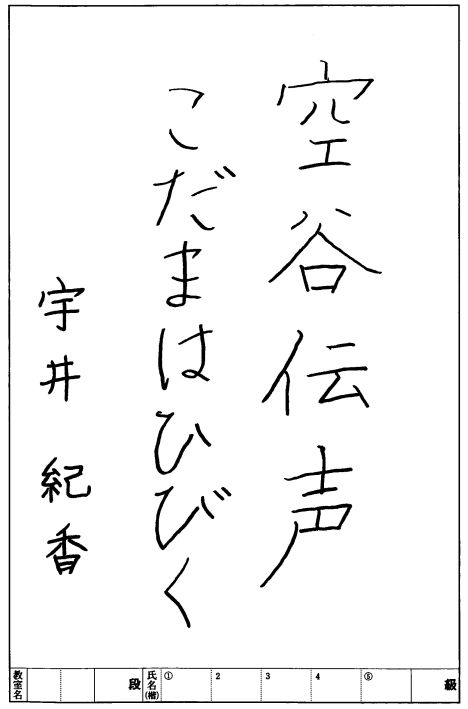 空谷伝声
こだまはひびく
宇井 紀香
級
⑤
4
3
2
①
氏名(楷)
段
教室名